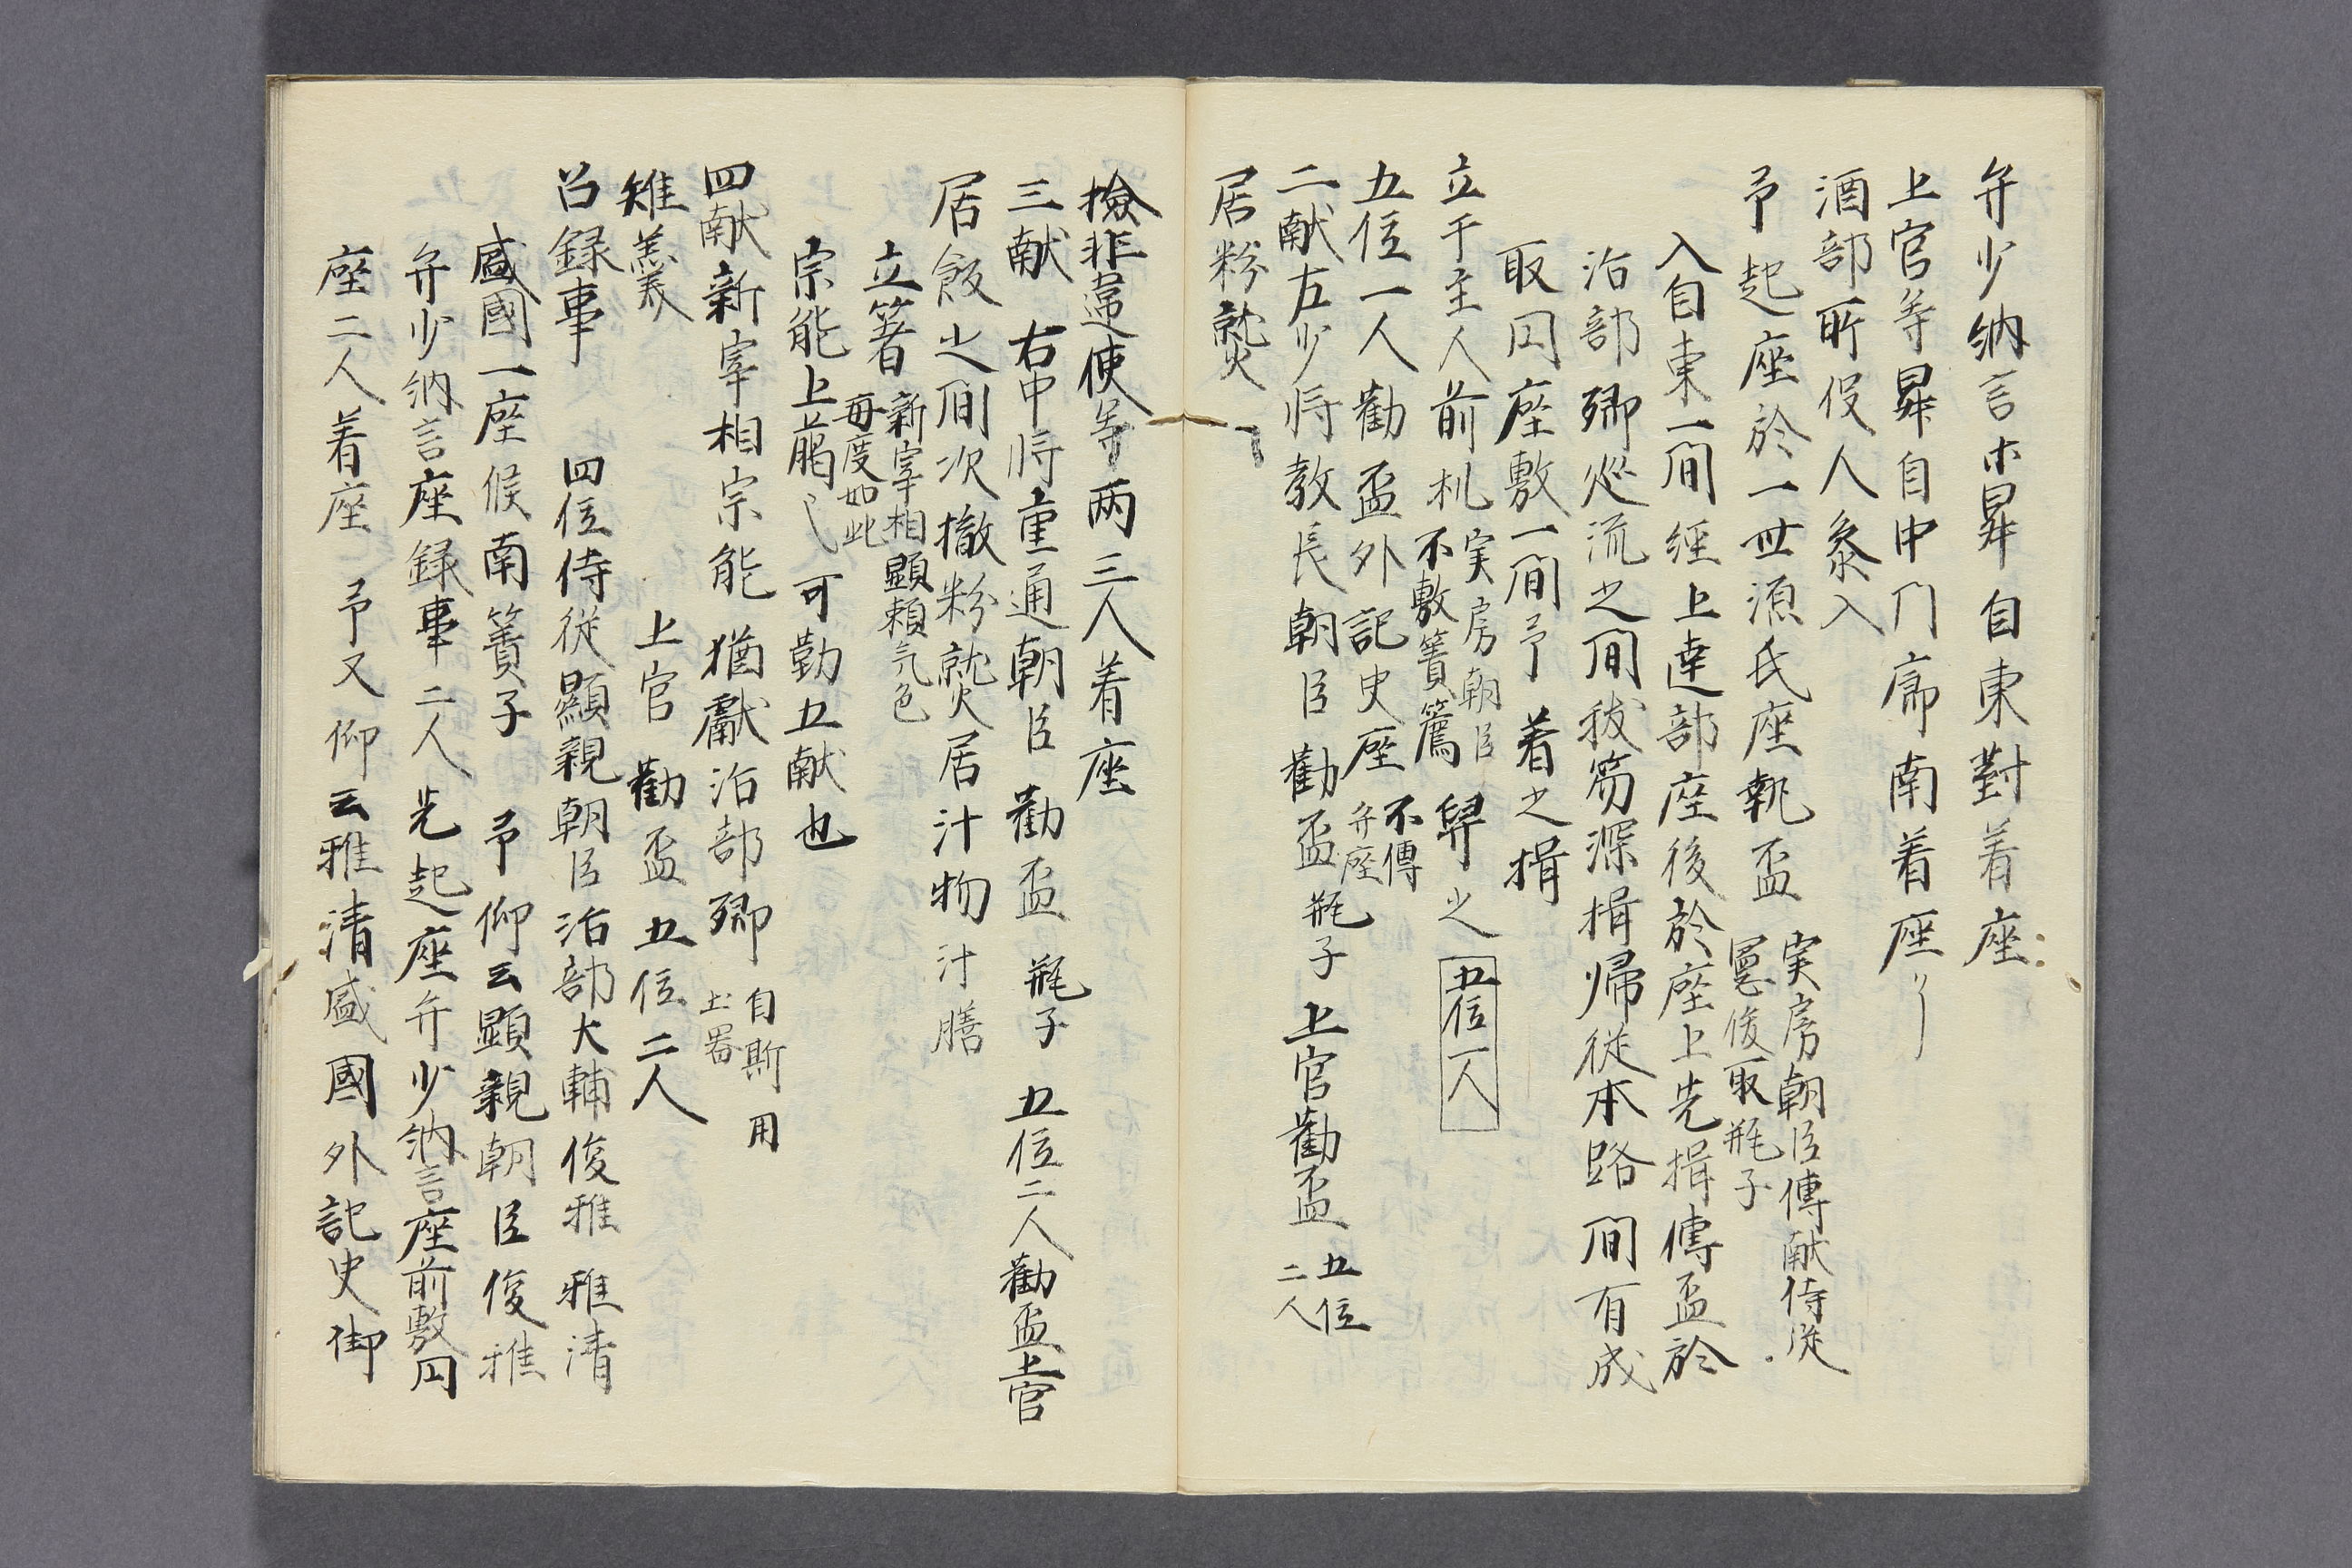 弁少納言未昇自東對着座
上官等昇自中門廊南着座了
酒部所役人参入
予起座於一世源氏座執盃 実房朝臣傳献侍従
憲俊取瓶子
入自東一間経上達部座後於座上先揖傳盃於
治部卿巡流之間抜笏深揖帰従本路間有成
取円座敷一間予着之揖
立予主人前机 実房朝臣
不敷簀薦 舁之 五位一人
五位一人勸盃外記史座 不傳
弁座
二献左少将教長朝臣勸盃瓶子上官勸盃 五位
二人
居粉熟
撿非違使等両三人着座
三献 右中将重通朝臣 勸盃 瓶子 五位二人勸盃上官
居飯之間次撤粉熟居汁物汁膳
立箸 新宰相顕頼気色
毎度如此
宗能上﨟也可勤五献也
四献新宰相宗能猶獻治部卿 自斯用
土器
雉羹 上官勸盃五位二人
召録事 四位侍従顯親朝臣治部大輔俊雅雅清
盛國一座候南簀子 予仰云顕親朝臣俊雅
弁少納言座録事二人先起座弁少納言座前敷円
座二人着座 予又仰云雅清盛國外記史御